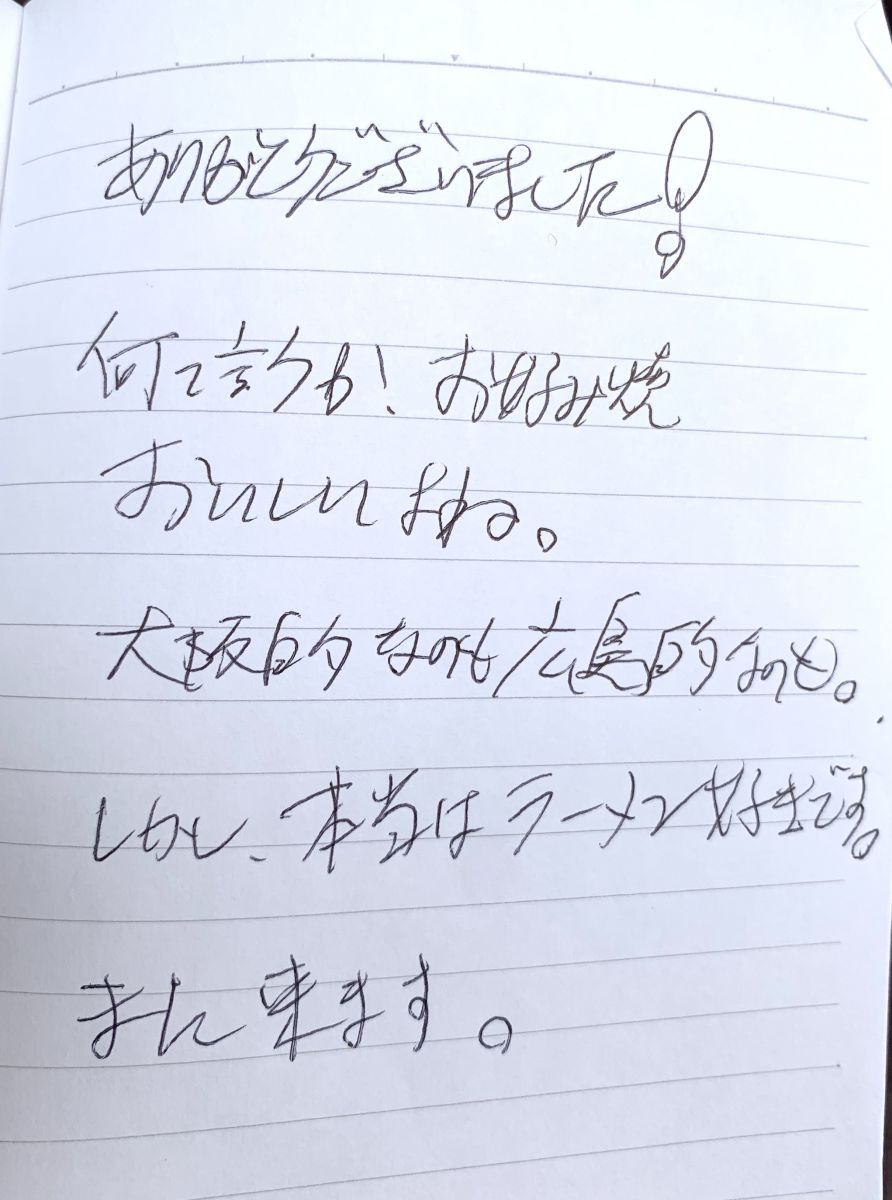 ありがとうございました!
何て言うか! お好み焼
おいしいよね。
大阪的なのも広島的なのも。
しかし、本当はラーメン好きです。
また来ます。